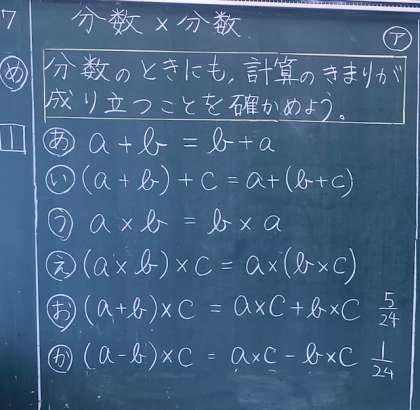 7 分数×分数 ㋐
㋱ 分数のときにも,計算のきまりが
成り立つことを確かめよう。
1 あ a+b=b+a
い (a+b)+c=a+(b+c)
う a×b=b×a
え (a×b)×c=a×(b×c)
お (a+b)×c=a×c+b×c 5/24
か (a-b)×c=a×c-b×c 1/24